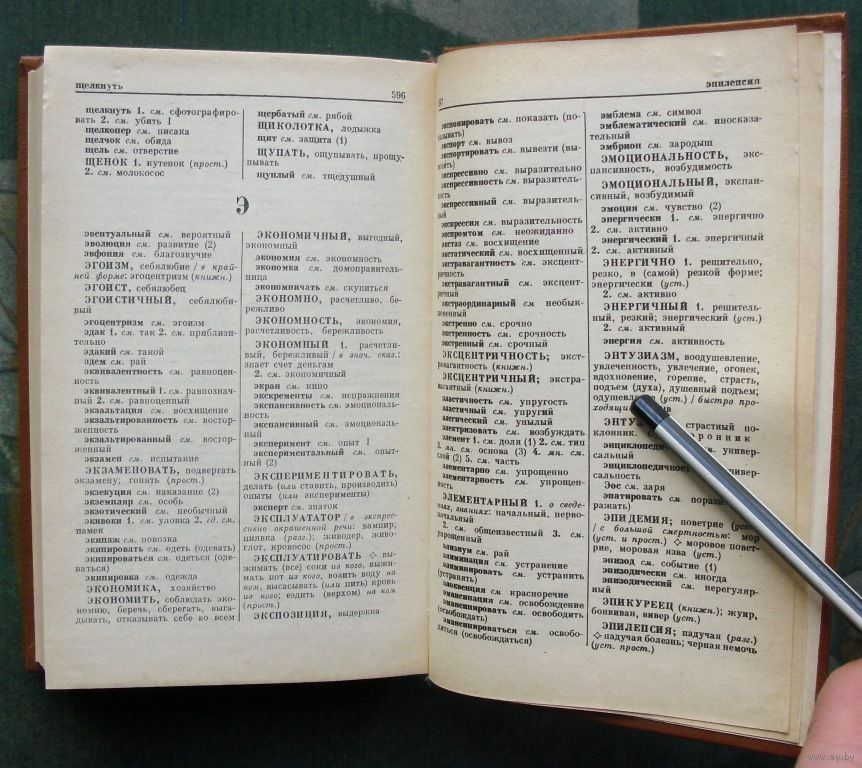 щелкнуть
596
щелкнуть 1. см. сфотографиро-
вать 2. см. убить 1
щелкопер см. писака
щелчок см. обида
щель см. отверстие
ЩЕНОК 1. кутенок (прост.)
2. см. молокосос
щербатый см. рябой
ЩИКОЛОТКА, лодыжка
щит см. защита (1)
ЩУПАТЬ, ощупывать, прощу-
пывать
щуплый см. тщедушный
Э
эвентуальный см. вероятный
эволюция см. развитие (2)
эвфония см. благозвучие
ЭГОИЗМ, себялюбие / в край-
ней форме: эгоцентризм (книжн.)
ЭГОИСТ, себялюбец
ЭГОИСТИЧНЫЙ, себялюби-
вый
эгоцентризм см. эгоизм
эдак 1. см. так 2. см. приблизи-
тельно
эдакий см. такой
эдем см. рай
эквивалентность см. равноцен-
ность
эквивалентный 1. см. равнознач-
ный 2. см. равноценный
экзальтация см. восхищение
экзальтированность см. востор-
женность
экзальтированный см. востор-
женный
экзамен см. испытание
ЭКЗАМЕНОВАТЬ, подвергать
экзамену; гонять (прост.)
экзекуция см. наказание (2)
экземпляр см. особь
экзотический см. необычный
экивоки 1. см. уловка 2. ед. см.
намек
экипаж см. повозка
экипировать см. одеть (одевать)
экипироваться см. одеться (оде-
ваться)
экипировка см. одежда
ЭКОНОМИКА, хозяйство
ЭКОНОМИТЬ, соблюдать эко-
номию, беречь, сберегать, выга-
дывать, отказывать себе во всем
ЭКОНОМИЧНЫЙ, выгодный,
экономный
экономия см. экономность
экономка см. домоправитель-
ница
экономничать см. скупиться
ЭКОНОМНО, расчетливо, бе-
режливо
ЭКОНОМНОСТЬ, экономия,
расчетливость, бережливость
ЭКОНОМНЫЙ 1. расчетли-
вый, бережливый / в знач. сказ.:
знает счет деньгам
2. см. экономичный
экран см. кино
экскременты см. испражнения
экспансивность см. эмоциональ-
ность
экспансивный см. эмоциональ-
ный
эксперимент см. опыт 1
экспериментальный см. опыт-
ный (2)
ЭКСПЕРИМЕНТИРОВАТЬ,
делать (или ставить, производить)
опыты (или эксперименты)
эксперт см. знаток
ЭКСПЛУАТАТОР / в экспрес-
сивно окрашенной речи: вампир;
пиявка (разг.); живодер, живо-
глот, кровосос (прост.)
ЭКСПЛУАТИРОВАТЬ ✧ вы-
жимать (все) соки из кого, выжи-
мать пот из кого, возить воду на
ком, высасывать (или пить) кровь
из кого; ездить (верхом) на ком
(прост.)
ЭКСПОЗИЦИЯ, выдержка
эпилепсия
экспонировать см. показать (по-
зывать)
экспорт см. вывоз
экспортировать см. вывезти (вы-
возить)
экспрессивно см. выразительно
экспрессивность см. выразитель-
ность
экспрессивный см. выразитель-
ный
экспрессия см. выразительность
экспромтом см. неожиданно
экстаз см. восхищение
экстатический см. восхищенный
экстравагантность см. эксцент-
ричность
экстравагантный см. эксцент-
ричный
экстраординарный см. необык-
новенный
экстренно см. срочно
экстренность см. срочность
экстренный см. срочный
ЭКСЦЕНТРИЧНОСТЬ; экст-
равагантность (книжн.)
ЭКСЦЕНТРИЧНЫЙ; экстра-
вагантный (книжн.)
эластичность см. упругость
эластичный см. упругий
элегический см. унылый
электризовать см. возбуждать
элемент 1. см. доля (1) 2. см. тип
3. мн. см. основа (3) 4. мн. см.
слой (2) 5. см. часть
элементарно см. упрощенно
элементарность см. упрощен-
ность
ЭЛЕМЕНТАРНЫЙ 1. о сведе-
ниях, знаниях: начальный, перво-
начальный
2. см. общеизвестный 3. см.
упрощенный
элизиум см. рай
элиминация см. устранение
элиминировать см. устранить
(устранять)
элоквенция см. красноречие
эмансипация см. освобождение
эмансипировать см. освободить
(освобождать)
эмансипироваться см. освобо-
диться (освобождаться)
эмблема см. символ
эмблематический см. иносказа-
тельный
эмбрион см. зародыш
ЭМОЦИОНАЛЬНОСТЬ, экс-
пансивность, возбудимость
ЭМОЦИОНАЛЬНЫЙ, экспан-
сивный, возбудимый
эмоция см. чувство (2)
энергически 1. см. энергично
2. см. активно
энергический 1. см. энергичный
2. см. активный
ЭНЕРГИЧНО 1. решительно,
резко, в (самой) резкой форме;
энергически (уст.)
2. см. активно
ЭНЕРГИЧНЫЙ 1. решитель-
ный, резкий; энергический (уст.)
2. см. активный
энергия см. активность
ЭНТУЗИАЗМ, воодушевление,
увлеченность, увлечение, огонек,
вдохновение, горение, страсть,
подъем (духа), душевный подъем;
(уст.) / быстро про-
страстный по-
клонник.
универ-
сальный
универ-
сальность
Эос см. заря
эпатировать см.
ЭПИДЕМИЯ; поветрие
/ с большой смертностью: мор
(уст. и прост.) ✧ моровое повет-
рие, моровая язва (уст.)
эпизод см. событие (1)
эпизодически см. иногда
эпизодический см. нерегуляр-
ный
ЭПИКУРЕЕЦ (книжн.); жуир,
бонвиван, вивер (уст.)
ЭПИЛЕПСИЯ; падучая (разг.)
✧ падучая болезнь; черная немочь
(уст. прост.)
www.ay.by